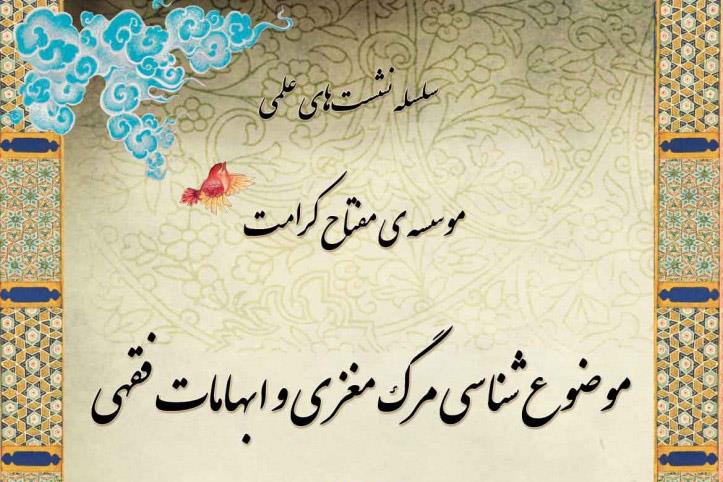 سلسله نشست‌های علمی
موسسه‌ی مفتاح کرامت
موضوع شناسی مرگ مغزی و ابهامات فقهی